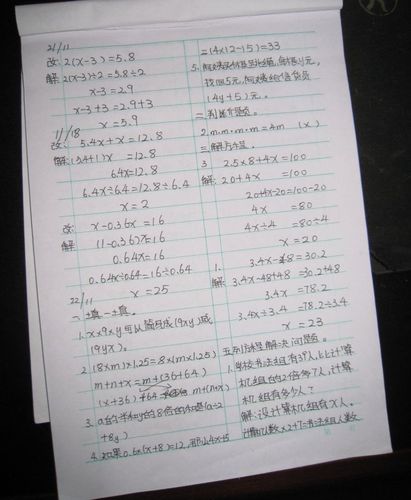 21/11
改: 2(x-3)=5.8
解: 2(x-3)÷2=5.8÷2
x-3=2.9
x-3+3=2.9+3
x=5.9
11/18
改: 5.4x+x=12.8
解:(5.4+1)x=12.8
6.4x=12.8
6.4x÷6.4=12.8÷6.4
x=2
改: x-0.36x=16
解 (1-0.36)x=16
0.64x=16
0.64x÷0.64=16÷0.64
x=25
22/11
一.填一填.
1. x×9×y可以简写成(9xy)或
(9yx)。
2. (8×m)×1.25=8×(m×1.25)
m+n+x=m+(36+64)
(x+36)+64 m+(n+x)
3. a的
+8y)
4. 如果0.6×(x+8)=12,那么4x-15
=(14×12-15)=33
5.
找回5元,应付给售货员
(4y+5)元。
二.判断题.
2. m·m·m·m=4m (x)
三.解方程.
3 2.5×8+4x=100
解: 20+4x=100
20+4x-20=100-20
4x=80
4x÷4=80÷4
x=20
1. 3.4x-48=30.2
解: 3.4x-48+48=30.2+48
3.4x=78.2
3.4x÷3.4=78.2÷3.4
x=23
五.列方程解决问题。
1. 学校书法组有39人,比计算
机组的2倍多7人,计算
机组有多少人?
解:设计算机组有x人。
计算机人数×2+7=书法组人数